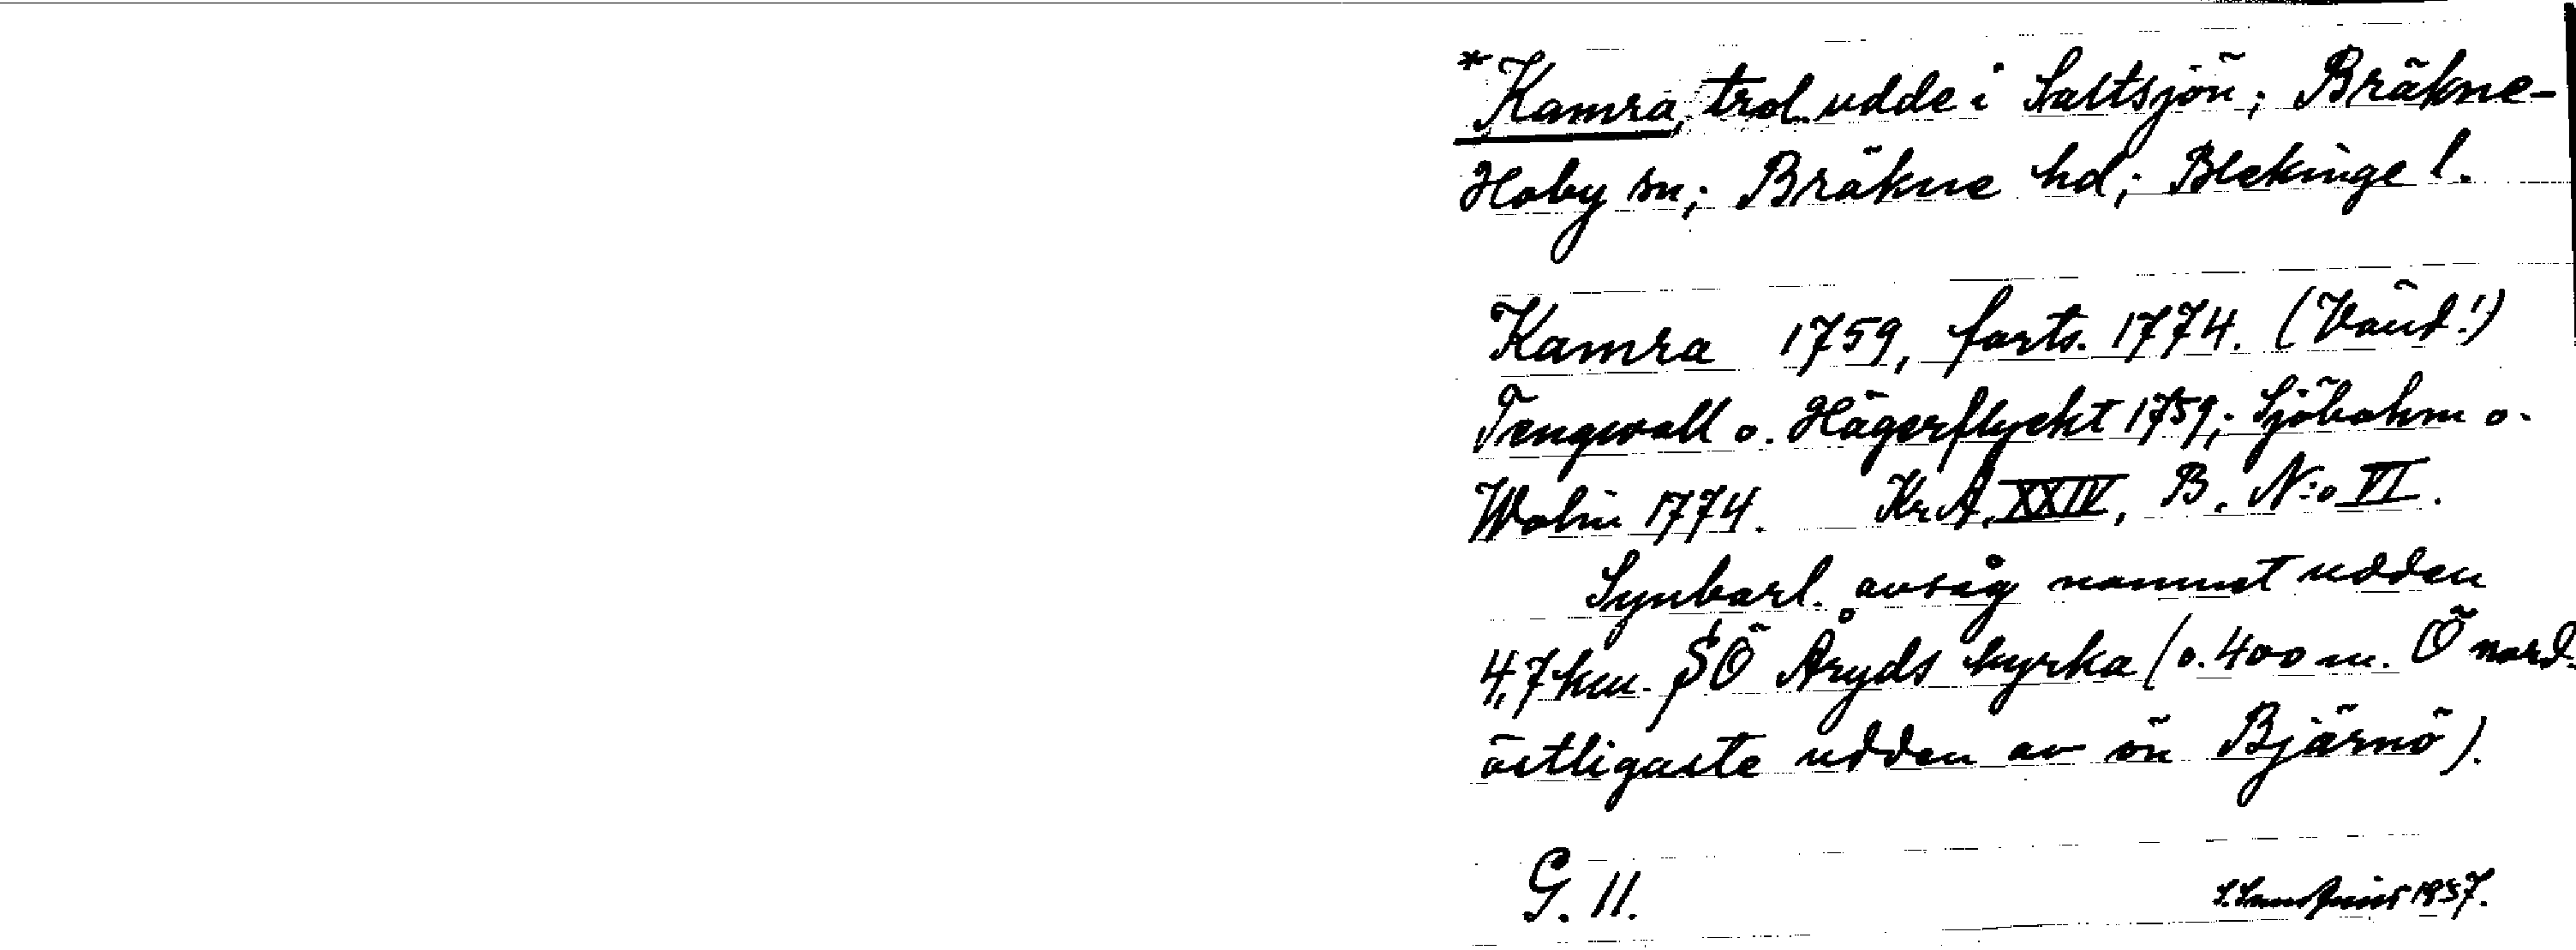 *Kamra, trol. udde i Saltsjön; Bräkne-
Hoby sn; Bräkne hd; Blekinge l.
Kamra 1759, forts. 1774. (Vänd!)
Tengwall o. Hägerflycht 1759; Sjöbohm o.
Wolin 1774. KrA, XXIV, B. N:o VI.
Synbarl. avsåg namnet udden
4,7 km. SÖ Åryds kyrka (o. 400 m. Ö nord-
östligaste udden av ön Bjärnö).
G. 11.
1937.